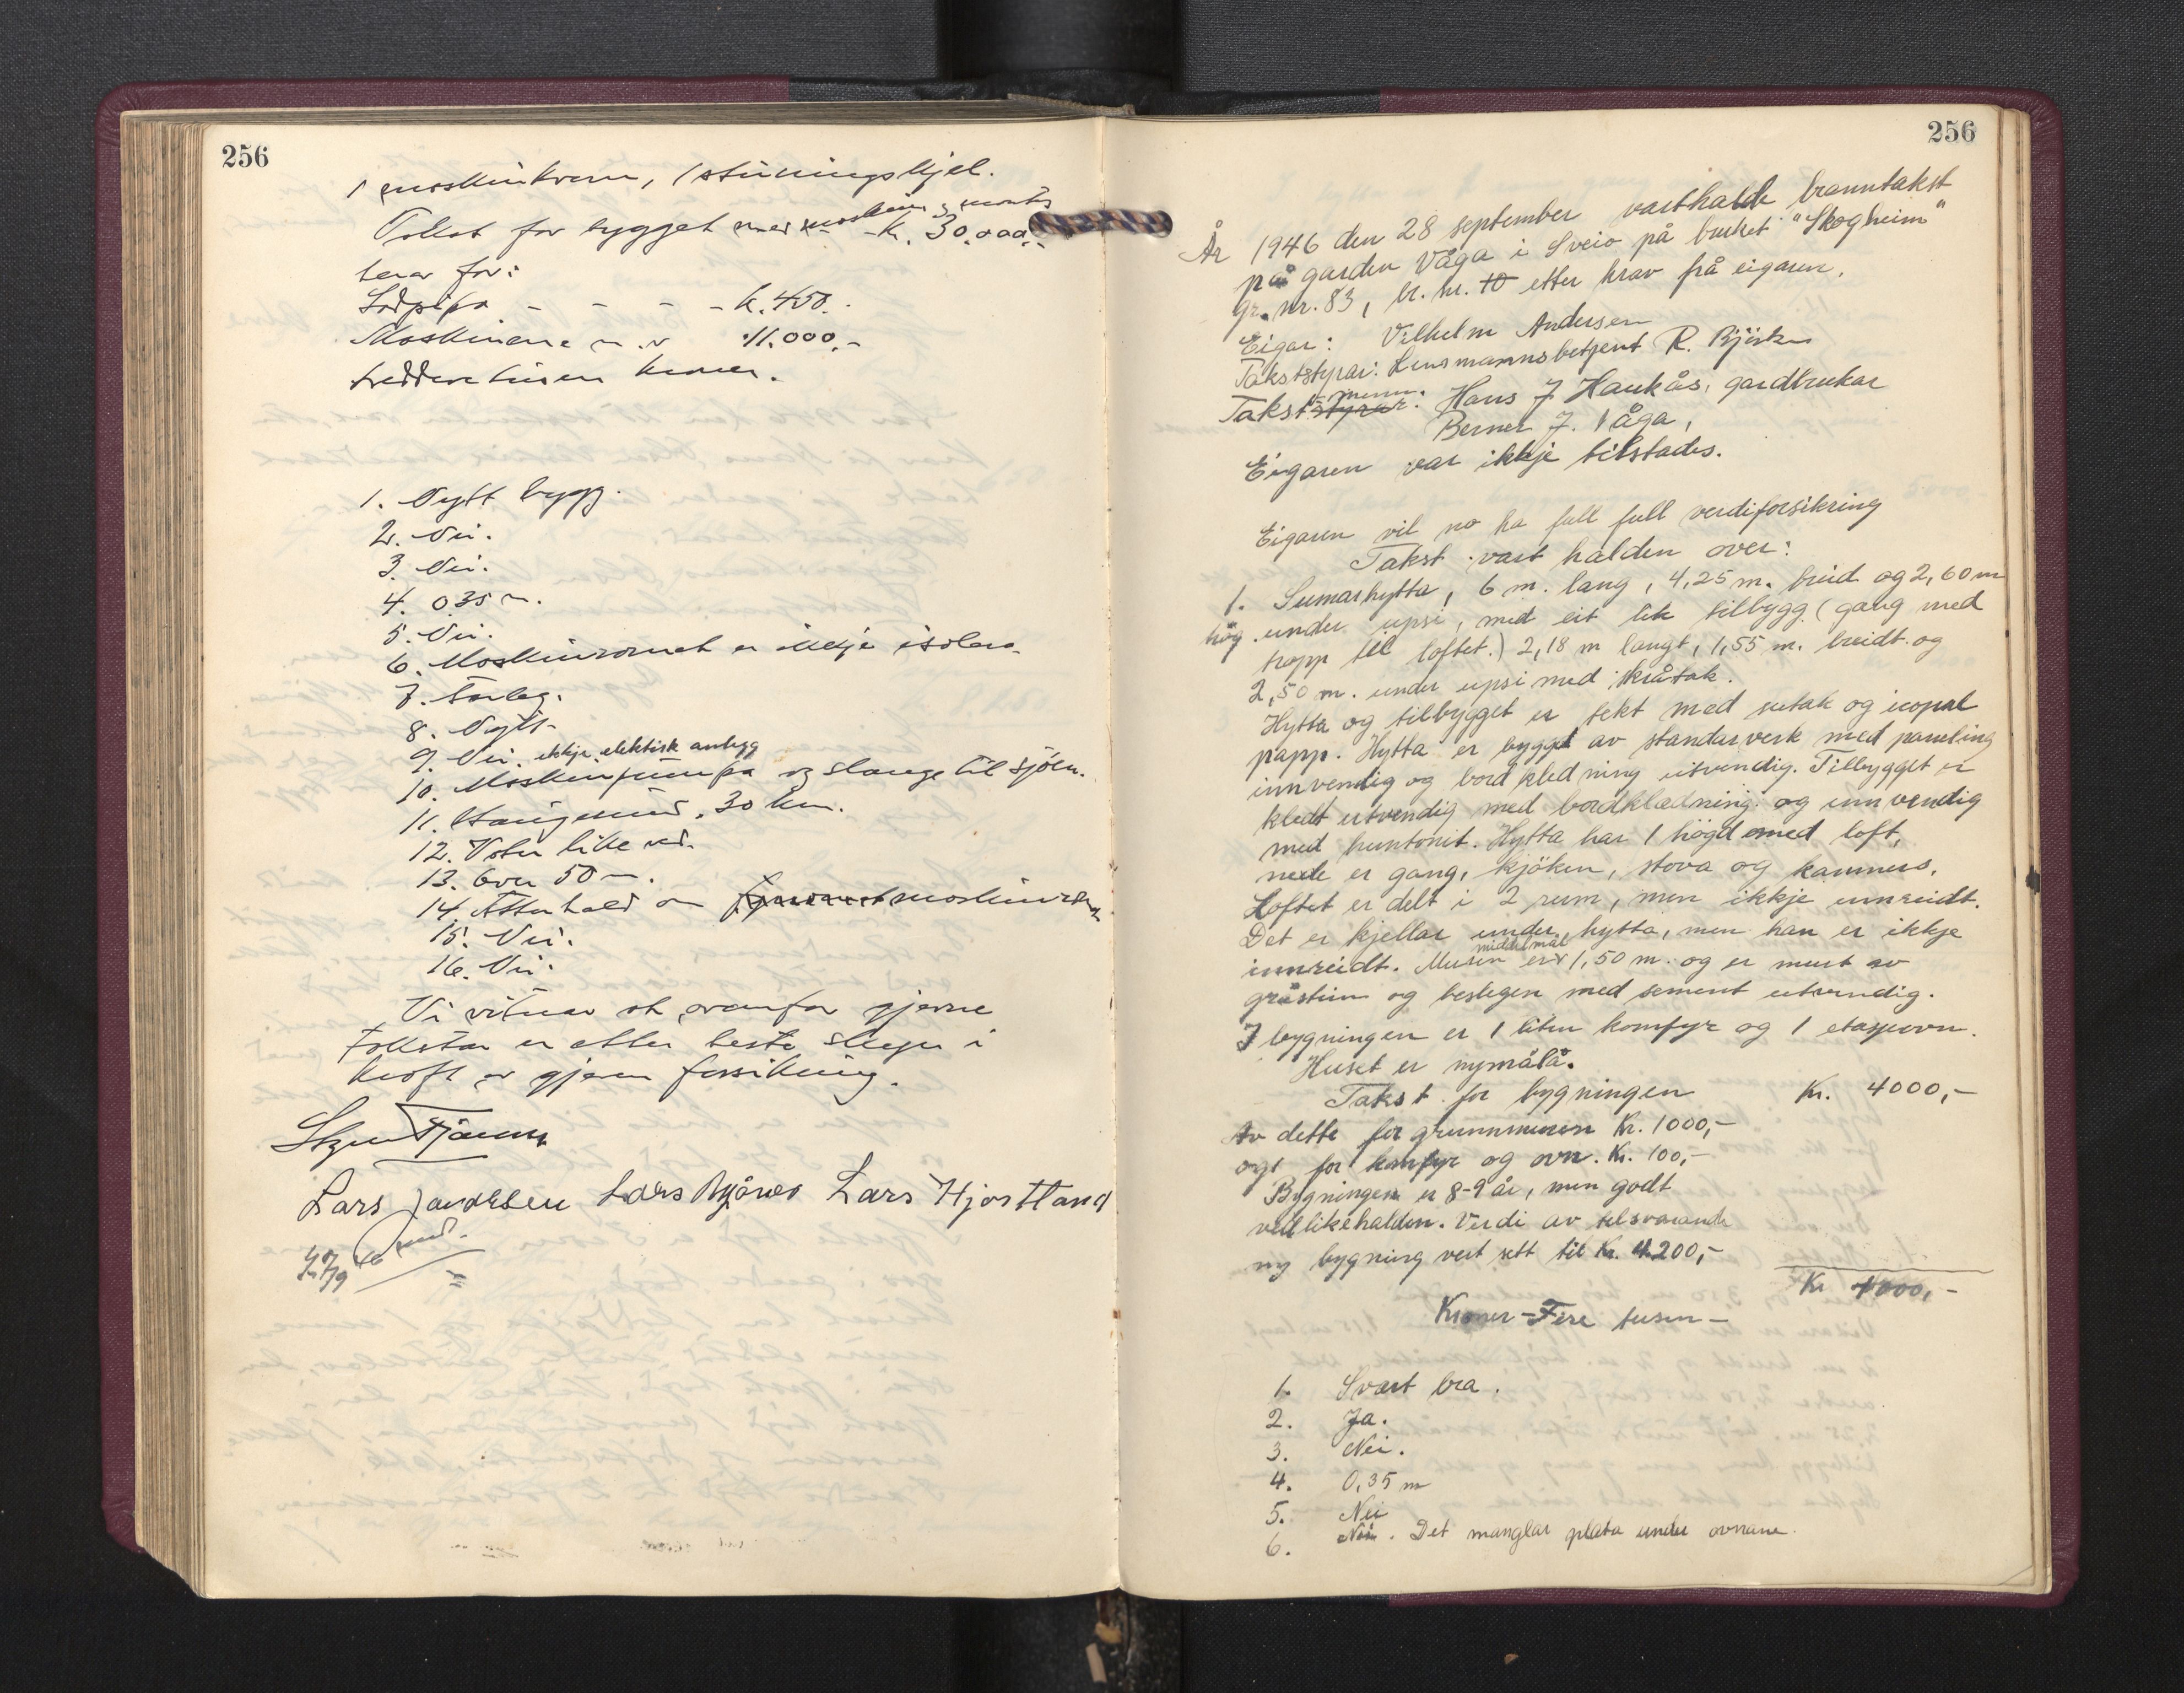 256
1 maskinkvern, 1 stüningskjel.
Takst for bygget med maskiner m. montr. k. 30.000,-
herav for:
Lodpipa - - - - k. 450.-
Maskinene m. v 11.000,-
treddeve tusen kroner.
1. Nytt bygg.
2. Nei.
3. Nei.
4. 0.35 m.
5. Nei.
6. Maskinromet er ikkje isolera.
7. Farleg.
8. Nytt.
9. Nei. ikkje elektisk anlegg
10. Maskinpumpa og slange til sjøen.
11. Haugesund, 30 km.
12. Veter like ved.
13. Over 50 m.
14. Atterhald om maskinrom
15. Nei.
16. Nei.
Vi vitnar at ovanfor gjevne
takstar er etter beste skjøn i
kraft av gjeven forsikring.
Lars Hjortland
256
År 1946 den 28 september vart halde branntakst
på garden Våga i Sveio på bruket "Skogheim"
gr. nr. 83, br. nr. 10 etter krav frå eigaren.
Eigar: Vilhelm Andersen
Takststyrar: Lensmannsbetjent R. Bjørkn
Takststyrar menn: Hans J Haukås, gardbrukar
Berner J. Våga,
Eigaren var ikkje tilstades.
Eigaren vil no ha full full verdiforsikring
Takst vart halden over:
1. Sumarhytta, 6 m. lang, 4,25 m. breid og 2,60 m
høg under upsi, med eit lite tilbygg (gang med
trapp til loftet.) 2,18 m langt, 1,55 m. breidt og
2,50 m. under upsi med skråtak.
Hytta og tilbygget er tekt med sutak og icopal
papp. Hytta er bygd av standarverk med paneling
innvendig og bordkledning utvendig. Tilbygget er
kledt utvendig med bordkledning og innvendig
med huntonit. Hytta har 1 høgd med loft,
nede er gang, kjøken, stova og kammers.
Loftet er delt i 2 rum, men ikkje innreidt.
Det er kjellar under hytta, men han er ikkje
innreidt. Muren er middelmål 1,50 m. og er murt av
gråstein og beslegen med sement utvendig.
I bygningen er 1 liten komfyr og 1 etasjeovn.
Huset er nymåla.
Takst for bygningen Kr. 4000,-
Av dette for grunnmuren Kr. 1000,-
og for komfyr og ovn. Kr. 100,-
Bygningen er 8-9 år, men godt
vedlikehalden. Verdi av tilsvarande
ny bygning vert sett til Kr. 4200,-
Kr 4000,-
Kroner - Fire tusen -
1. Svært bra.
2. Ja.
3. Nei.
4. 0,35 m
5. Nei
6. Nei. Det manglar plata under ovnane.